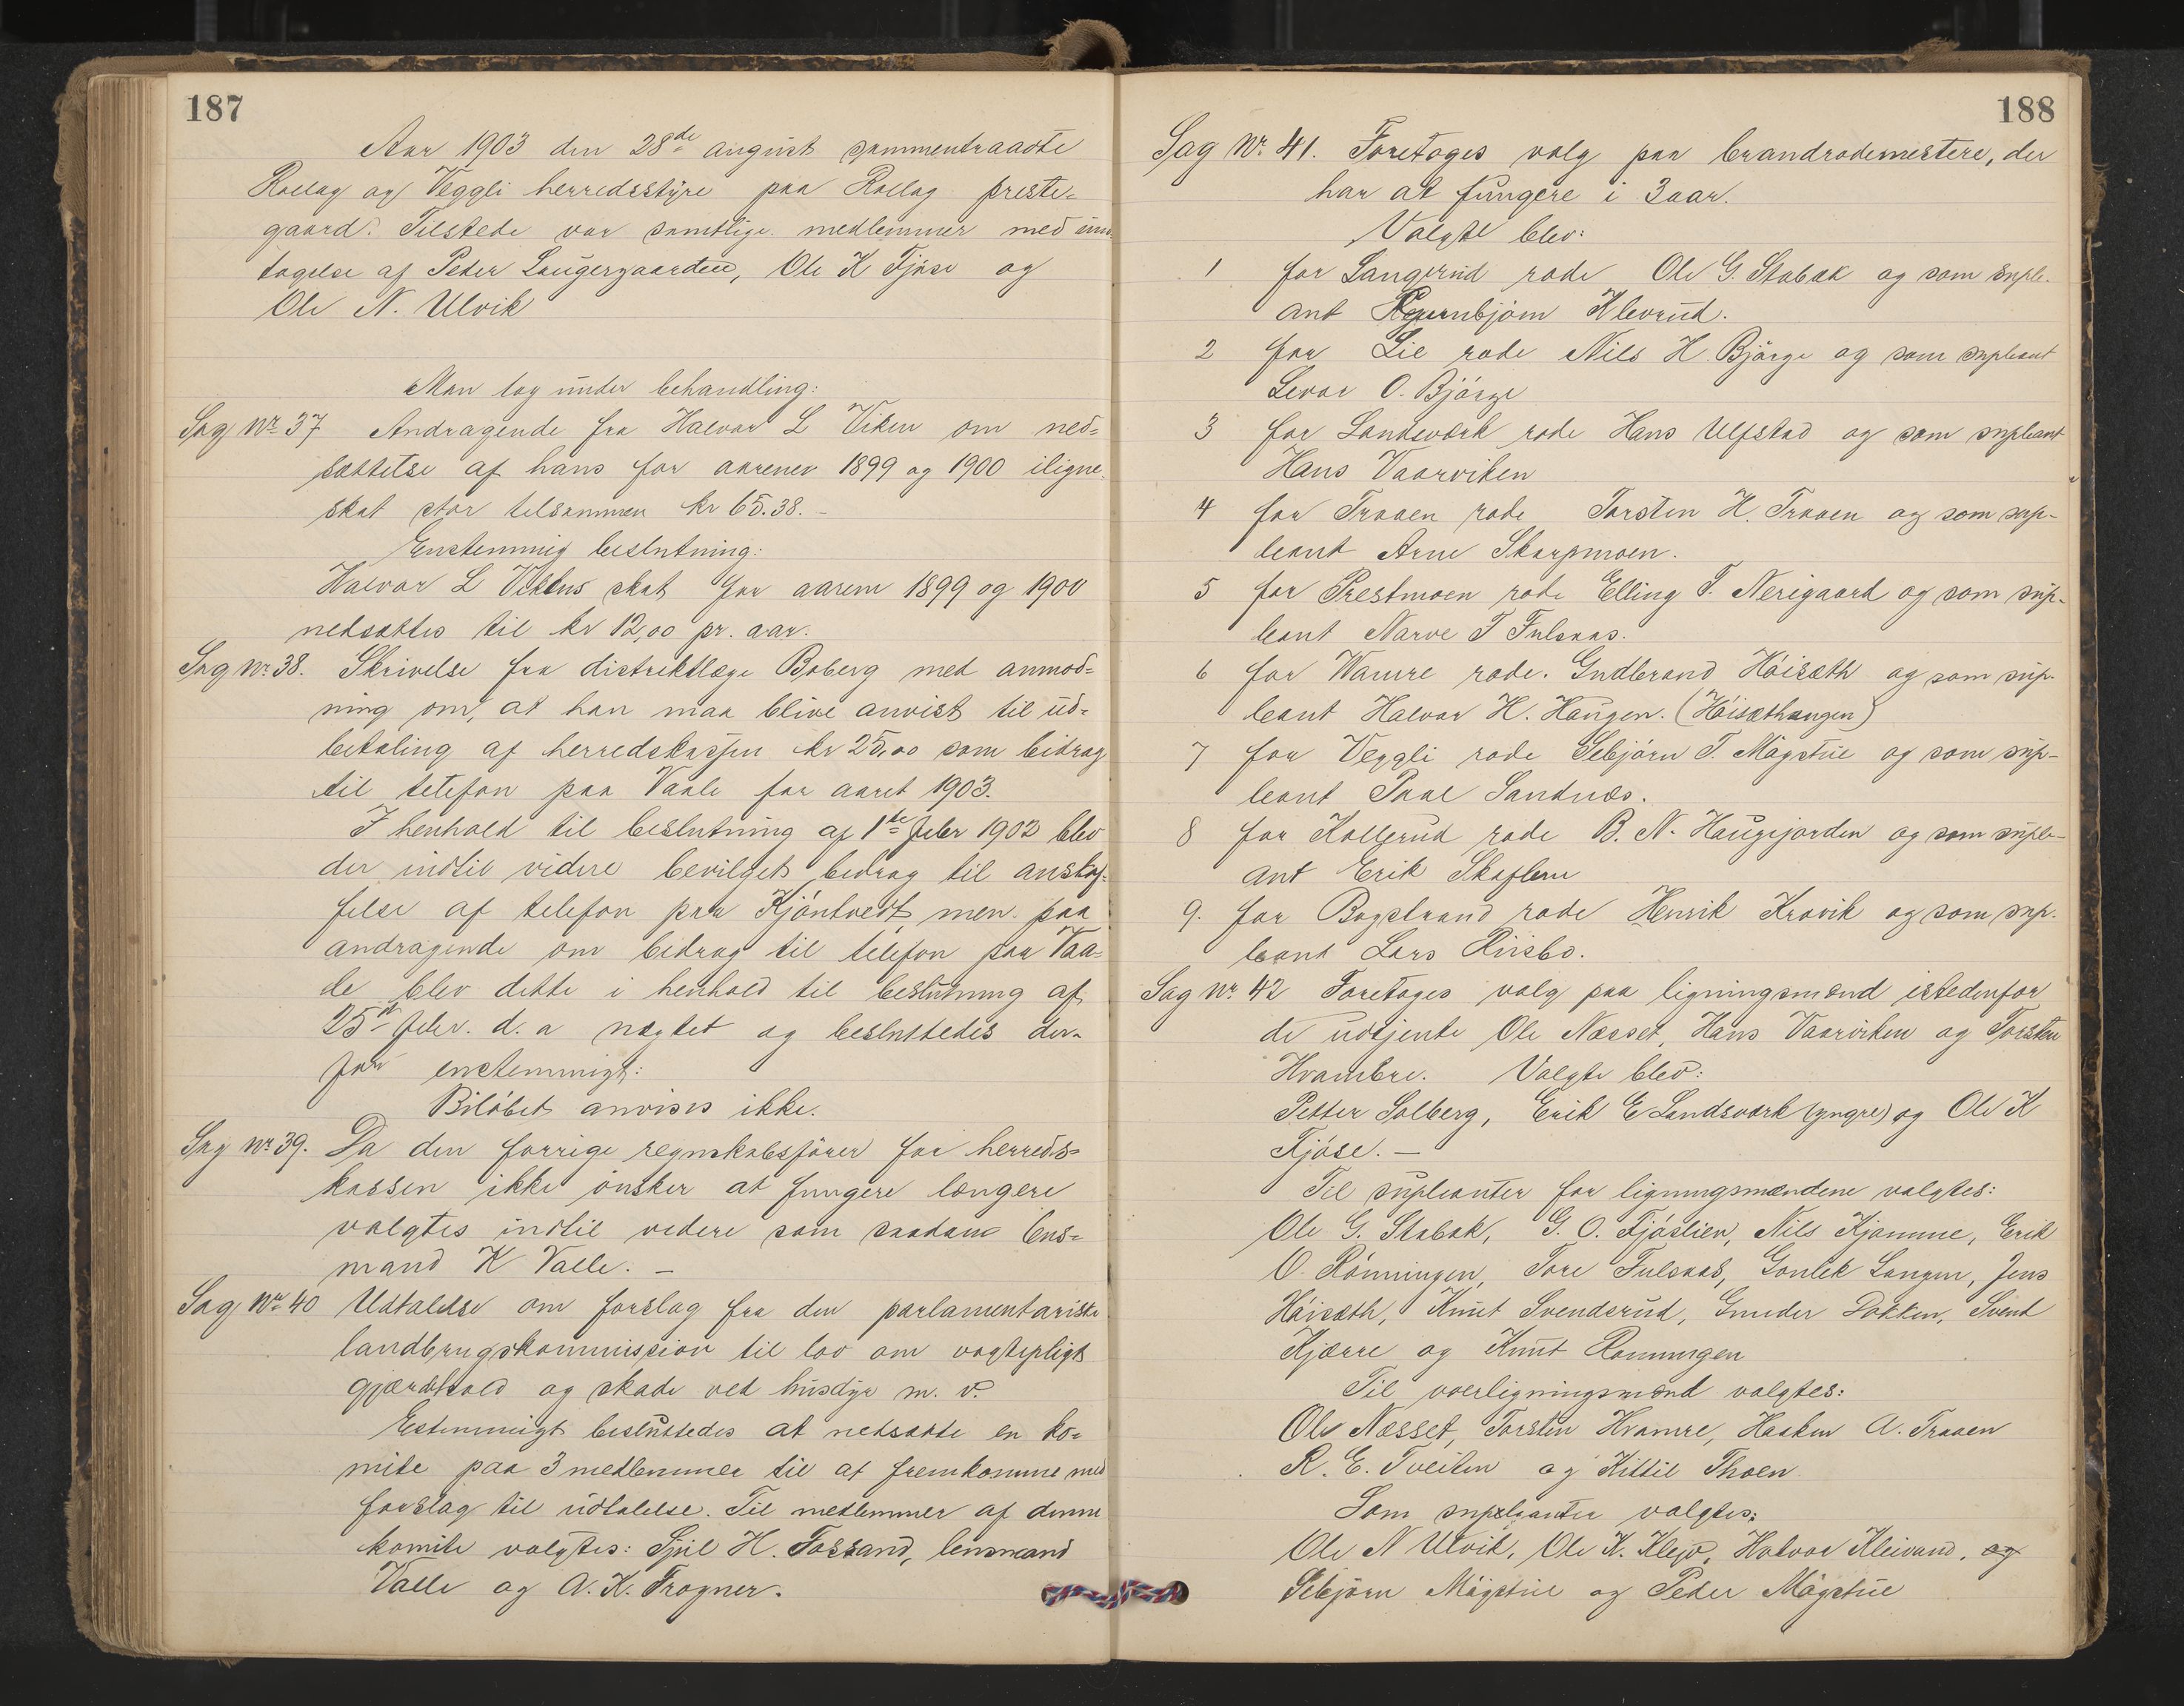 187
Aar 1903 den 28de august sammentraadte
Rollag og Veggli herredsstyre paa Rollag preste-
gaard. Tilstede var samtlige medlemmer med und
tagelse af Peder Laugergaarden, Ole K Fjøse og
Ole N. Ulvik
Man tog under behandling:
Sag Nr. 37 Andragende fra Halvor L Viken om ned-
sættelse af hans for aarener 1899 og 1900 iligne
skat stor tilsammen kr 65.38. -
Enstemmig beslutning:
Halvor L Vikens skat for aarene 1899 og 1900
nedsattes til kr 12,00 pr. aar.
Sag Nr. 38. Skrivelse fra distriktlæge Boberg med anmod-
ning om, at han maa blive anvist til ud-
betaling af herredskassen kr 25,00 som bidrag
til telefon paa Vaale for aaret 1903.
I henhold til beslutning af 1ste febr 1902 blev
der indtil videre bevilget bidrag til anskaf-
felse af telefon paa Kjøntvedt, men paa
andragende om bidrag til telefon paa Vaa-
le blev dette i henhold til beslutning af
25de febr. d. a nægtet og besluttedes der-
for enstemmigt:
Biløbet anvises ikke.
Sag Nr. 39. Da den forrige regnskabsfører for herreds-
kassen ikke ønsker at fungere længere
valgtes indtil videre som saadan lens-
mand K Valle. -
Sag Nr. 40 Udtalelse om forslag fra den parlamentariske
landbrugskommission til lov om vogterpligt
gjærdehold og skade ved husdyr m. v.
Estemmigt besluttedes at nedsætte en ko-
mite paa 3 medlemmer til at fremkomme med
forslag til udtalelse. Til medlemmer af denne
komite valgtes: Spil H. Fossand, lensmand
Valle og A. K. Frogner.
188
Sag Nr. 41. Foretoges valg paa brandrodemestere, der
har at fungere i 3 aar.
Valgte blev:
1 for Langerud rode Ole G. Stabæk og som suple-
ant Gunbjørn Klevrud.
2 for Lie rode Nils H. Bjørge og som supleant
Levor O. Bjørge
3 for Landsværk rode Hans Ulfstad og som supleant
Hans Vaarviken
4 for Traaen rode Torsten H. Traaen og som sup-
leant Arne Skarpmoen.
5 for Prestmoen rode Elling T. Nerigaard og som sup-
leant Narve T Fulsaas.
6 for Wamre rode. Gudbrand Høisæth og som sup-
leant Halvor H. Haugen. (Høisæthaugen)
7 for Veggli rode Sebjørn T. Mågstue og som sup-
leant Paal Sandnæs.
8 for Kollerud rode B. N. Haugejorden og som suple-
ant Erik Skaflem
9. for Bogstrand rode Henrik Kravik og som sup-
leant Lars Riisbo.
Sag Nr. 42 Foretoges valg paa ligningsmænd istedenfor
de udtjente Ole Næsset, Hans Vaarviken og Torsten
Hvambre. Valgte blev:
Petter Solberg, Erik E Landsværk (yngre) og Ole K
Fjøse. -
Til supleanter for ligningsmændene valgtes:
Ole G. Stabæk, G. O. Fjøslien, Nils Kjomme, Erik
O. Rønningen, Tore Fulsaas, Gonlek Langen, Jens
Høisæth, Knut Svendsrud, Gunder Dokken, Svend
Kjærre og Knut Rønningen
Til overligningsmænd valgtes:
Ole Næsset, Torsten Hvamre, Haaken A. Traaen
R. E. Tveiten og Kittil Thoen
Som supleanter valgtes:
Ole N Ulvik, Ole K. Klejv, Halvor Kleivand, og
Sebjørn Mågstue og Peder Mågstue